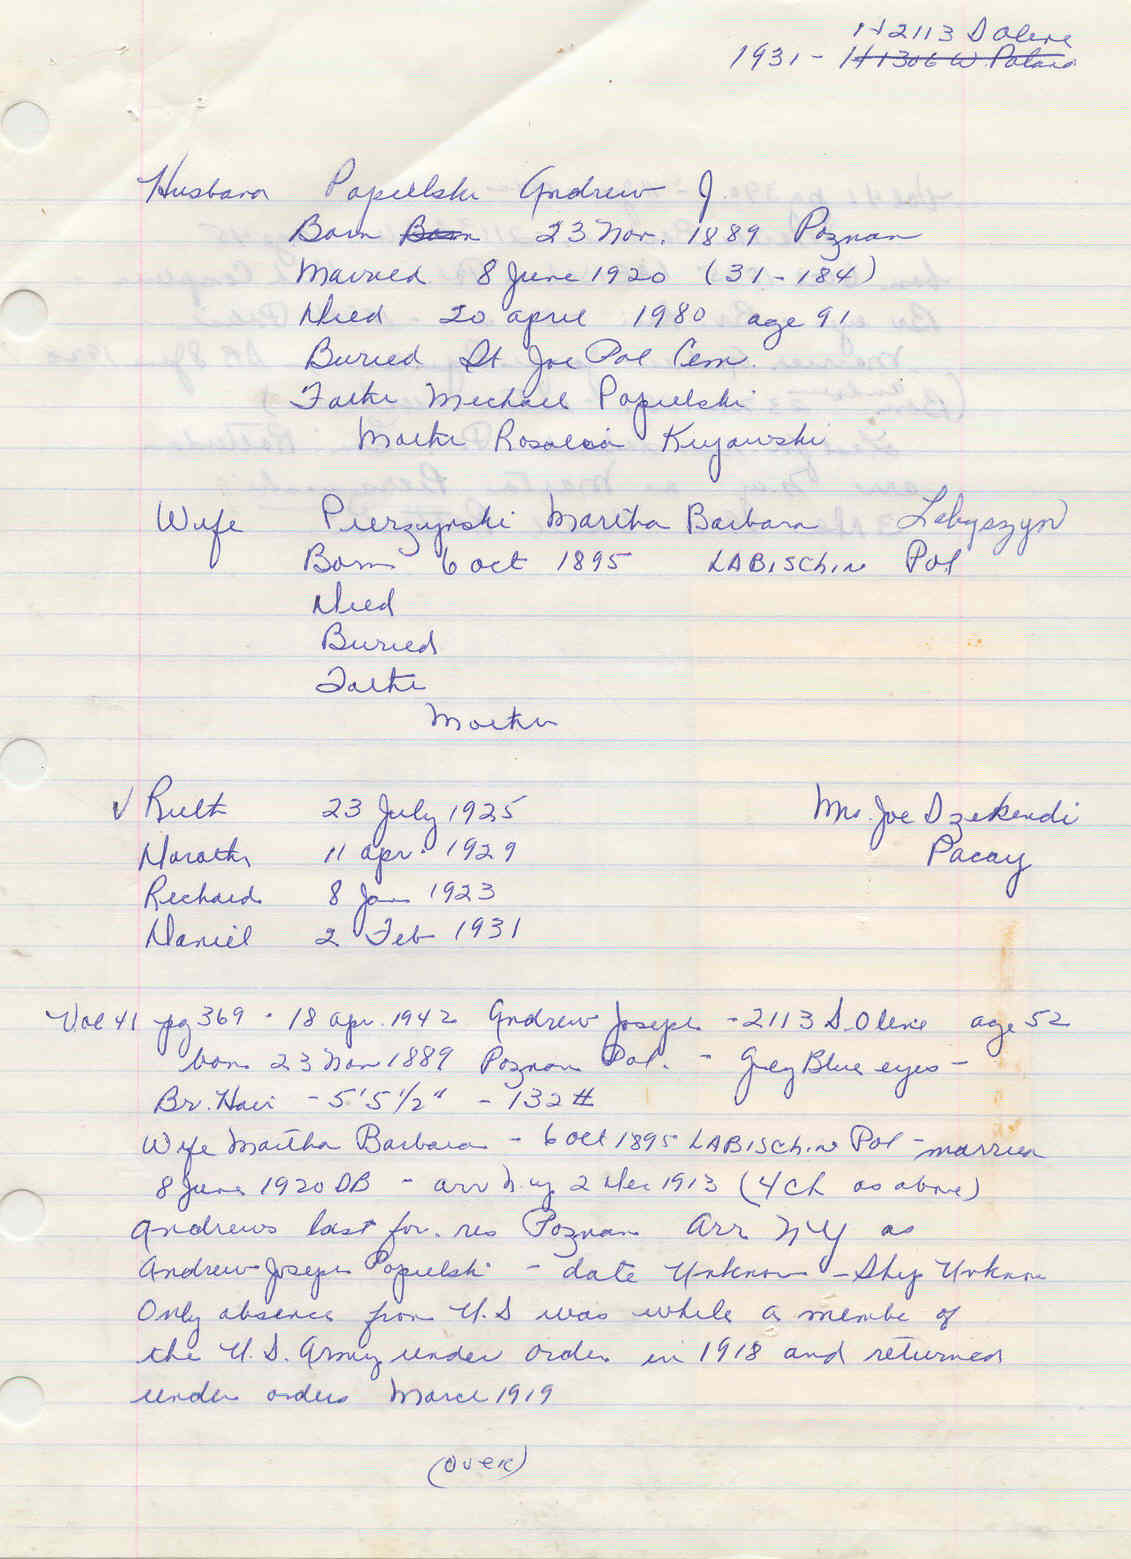 H 2113 S Olive
1931 - H 1306 W. Poland
Husband Popielski Andrew J.
Born Born 23 Nov. 1889 Poznan
Married 8 June 1920 (31-184)
Died 20 April 1980 age 91
Buried St Joe Pol Cem.
Father Michael Popielski
Mother Rosalia Kujawski
Wife Pierzynski Martha Barbara
Born 6 Oct 1895 LABISCHIN Pol
Died
Buried
Father
Mother
√ Ruth 23 July 1925 Mrs. Joe Dzekendi
Dorothy 11 Apr. 1929
Richard 8 Jan 1923
Daniel 2 Feb 1931
Vol 41 pg 369 · 18 Apr. 1942 Andrew Joseph - 2113 S. Olive age 52
born 23 Nov 1889 Poznan Pol. - Grey Blue eyes -
Br. Hair - 5'5 1/2" - 132 #
Wife Martha Barbara - 6 Oct 1895 LABISCHIN Pol - married
8 June 1920 SB - arr N.Y 2 Dec 1913 (4 ch as above)
Andrews last for. res Poznan Arr NY as
Andrew Joseph Popielski - date Unknown - Ship Unknown
Only absence from U.S was while a member of
the U.S. Army under orders in 1918 and returned
under orders March 1919
(over)